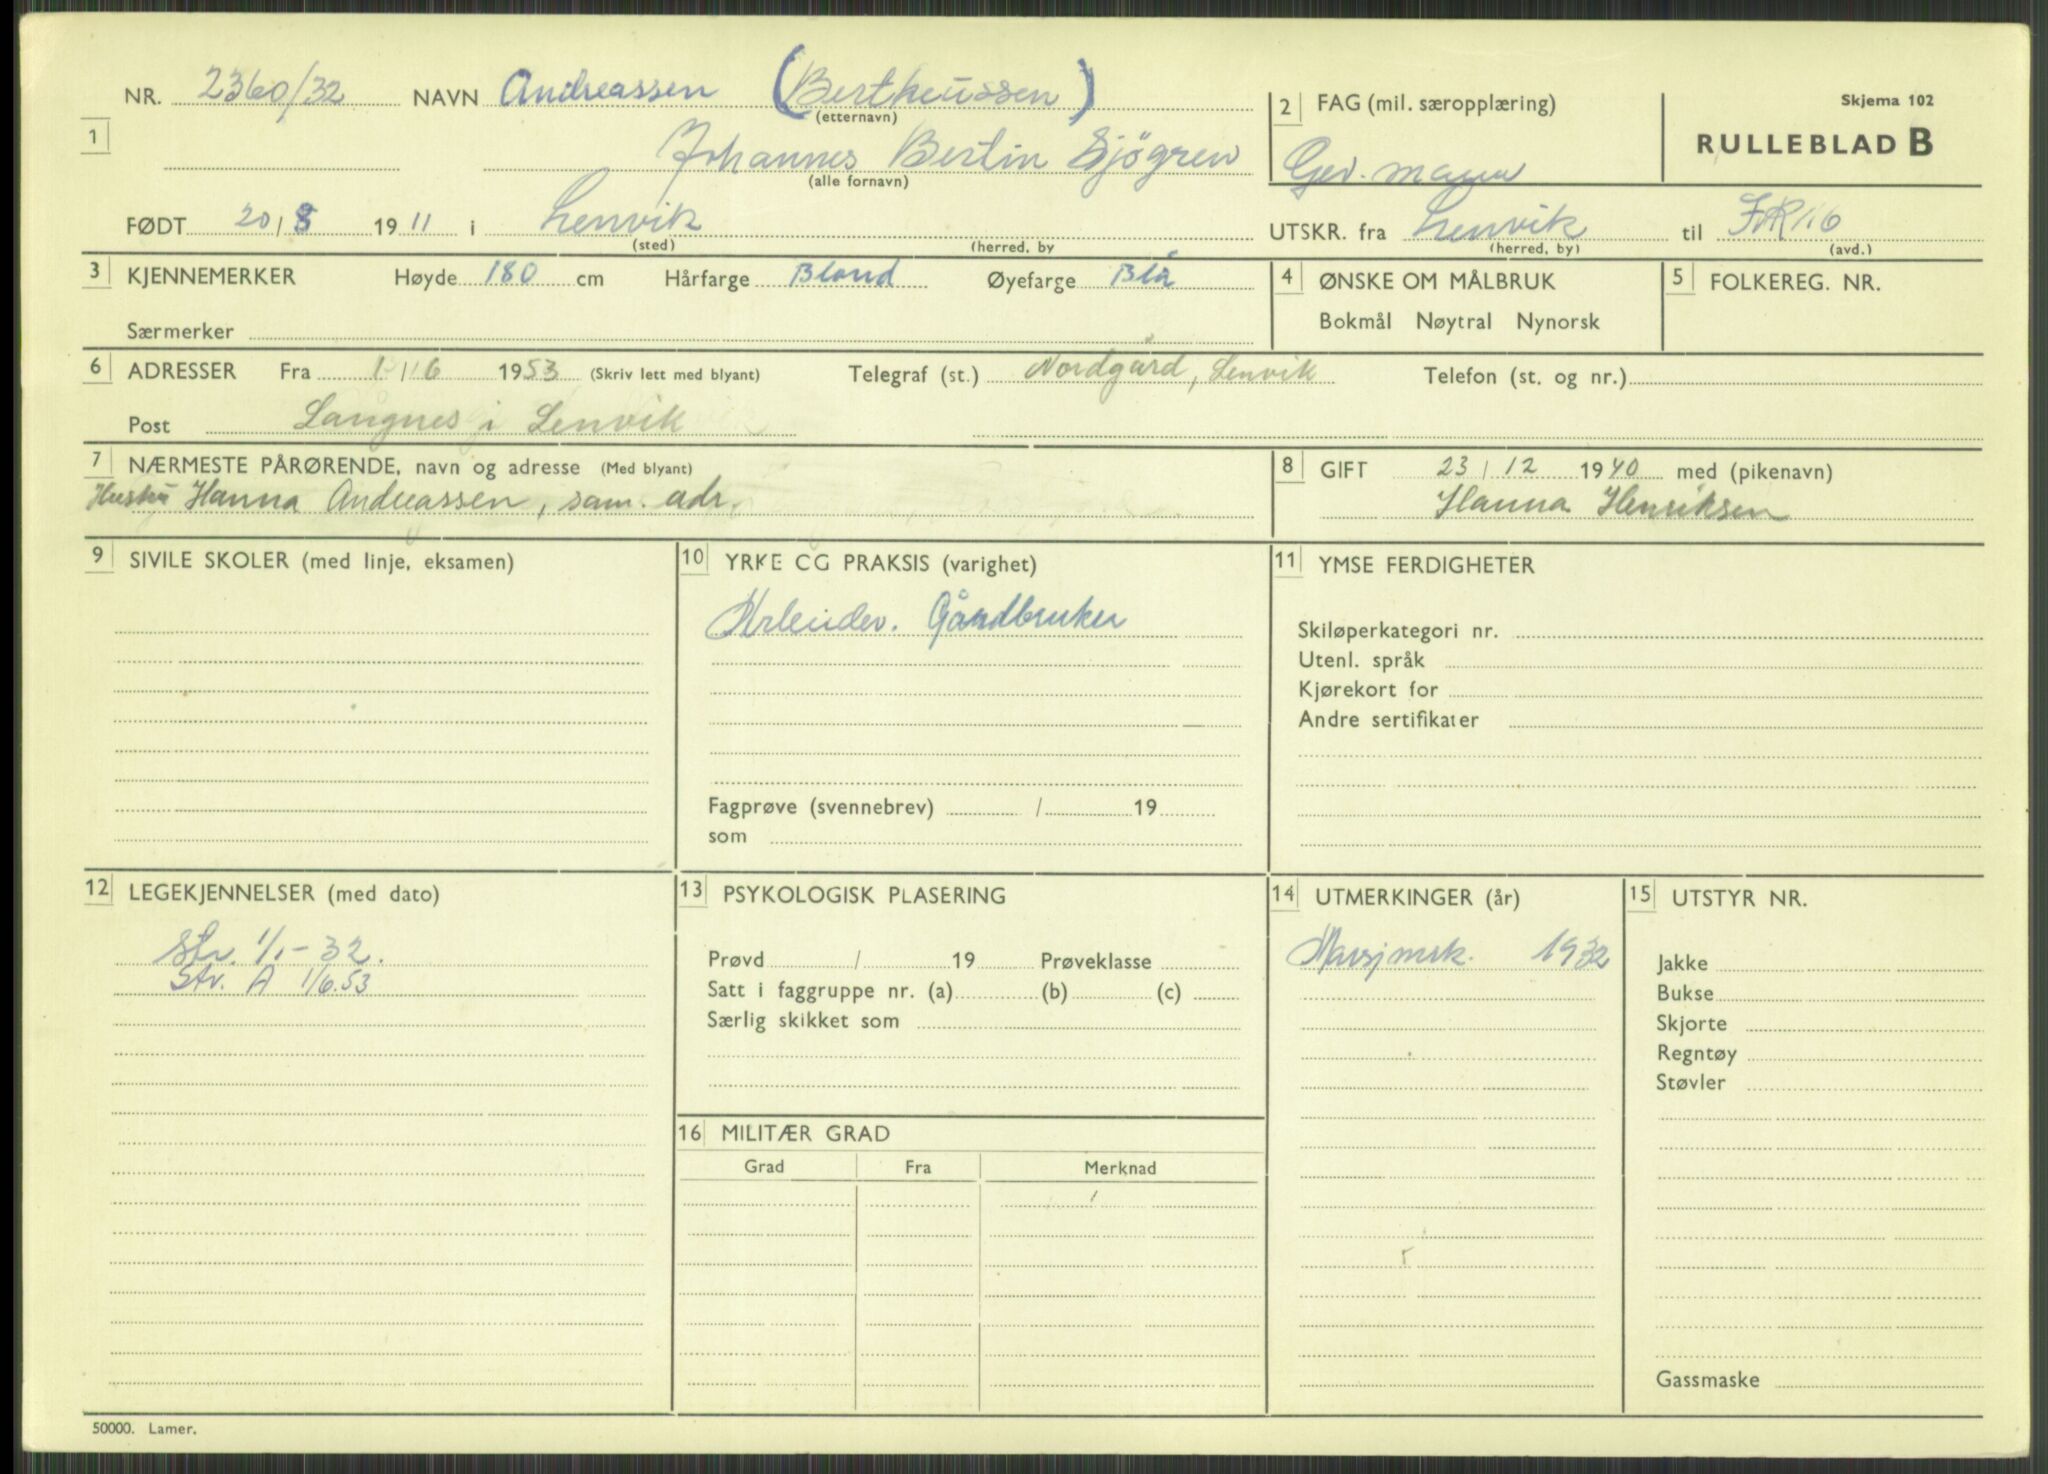 NR. 2360/32 NAVN Andreassen (Bertheussen) (etternavn)
1 Johannes Bertin Sjögren (alle fornavn)
2 FAG (mil. særopplæring)
Gev. mann
Skjema 102
RULLEBLAD B
FØDT 20/8 1911 i Lenvik (sted) (herred, by
UTSKR. fra Lenvik (herred, by) til IR16 (avd.)
3 KJENNEMERKER Høyde 180 cm Hårfarge Blond Øyefarge Blå
Særmerker
4 ØNSKE OM MÅLBRUK
Bokmål Nøytral Nynorsk
5 FOLKEREG. NR.
6 ADRESSER Fra 1/6 1953 (Skriv lett med blyant) Telegraf (st.) Nordgård, Lenvik Telefon (st. og nr.)
Post Langnes i Lenvik
7 NÆRMESTE PÅRØRENDE, navn og adresse (Med blyant)
Hustru Hanna Andreassen, sam. adr.
8 GIFT 23/12 1940 med (pikenavn)
Hanna Henriksen
9 SIVILE SKOLER (med linje, eksamen)
10 YRKE OG PRAKSIS (varighet)
Arbeider. Gårdbruker
Fagprøve (svennebrev) / 19
som
11 YMSE FERDIGHETER
Skiløperkategori nr.
Utenl. språk
Kjørekort for
Andre sertifikater
12 LEGEKJENNELSER (med dato)
Str. 1/1-32.
Str. A 1/6.53
13 PSYKOLOGISK PLASERING
Prøvd / 19 Prøveklasse
Satt i faggruppe nr. (a) (b) (c)
Særlig skikket som
14 UTMERKINGER (år)
Marsjmrk. 1932
15 UTSTYR NR.
Jakke
Bukse
Skjorte
Regntøy
Støvler
Gassmaske
16 MILITÆR GRAD
Grad Fra Merknad
50000. Lamer.